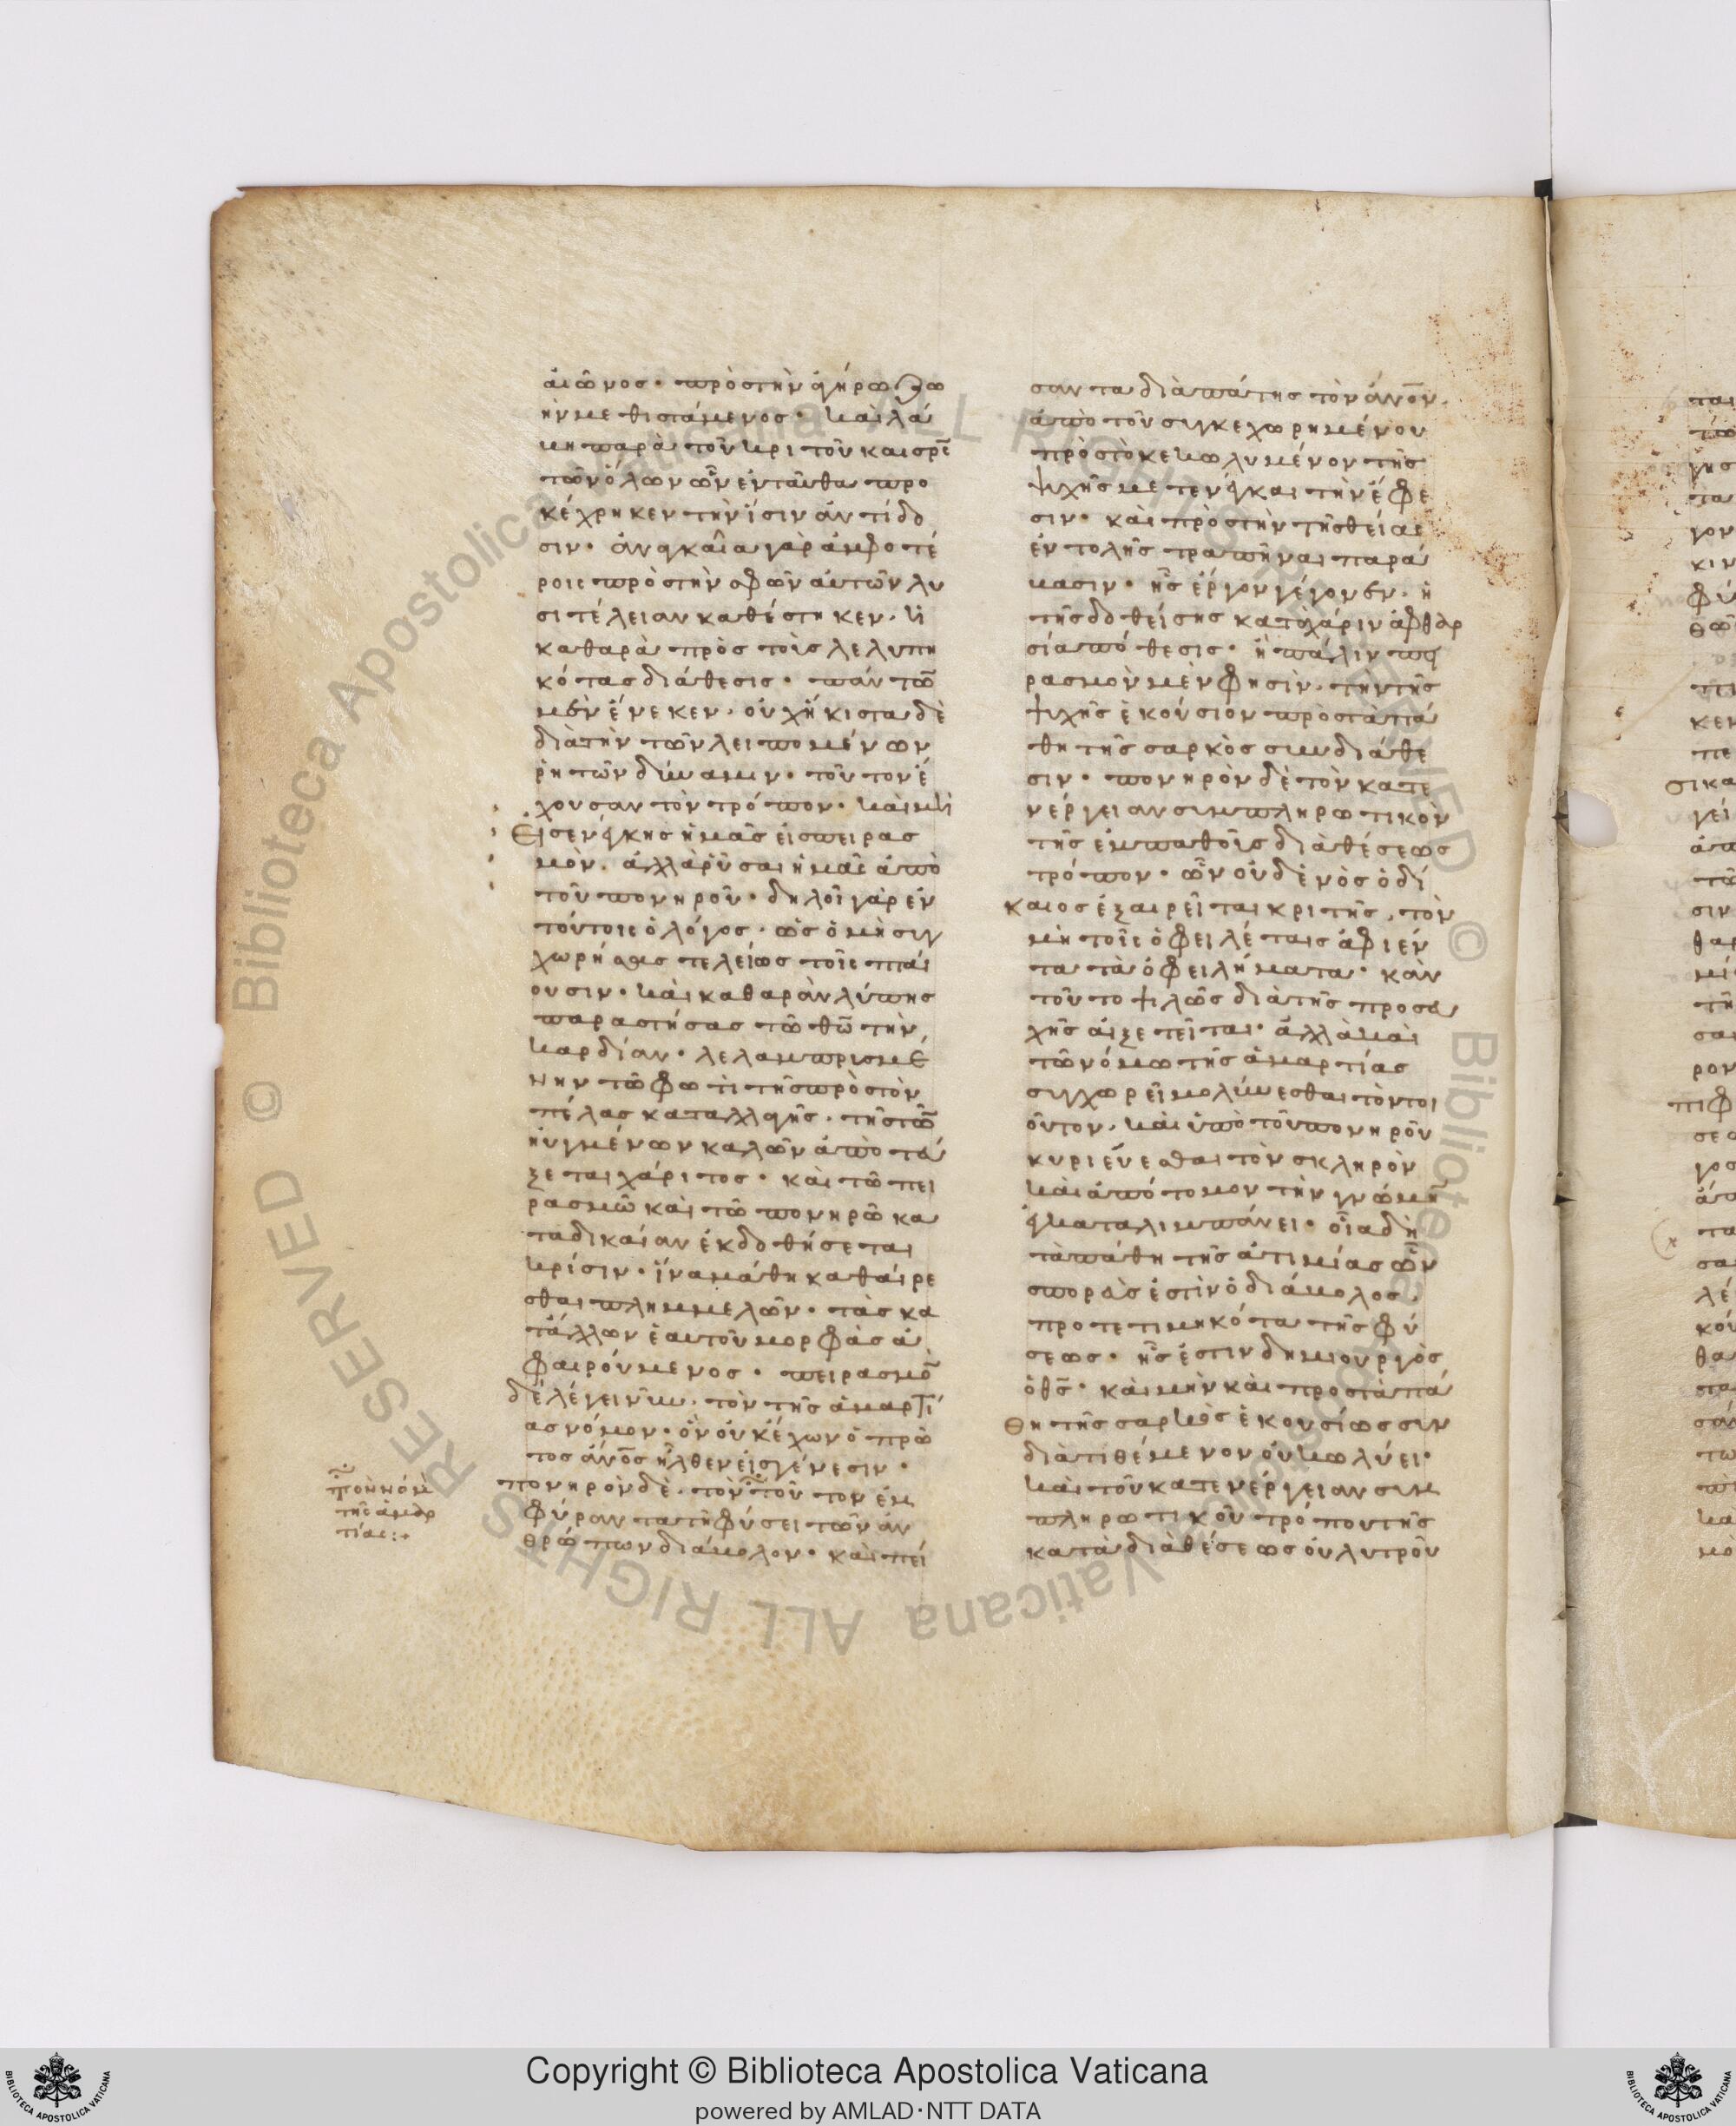 αἰῶνος· πρὸς τὴν ἀγήρω ζω
ὴν μεθιστάμενος· καὶ λά
βη παρὰ τοῦ κριτοῦ καὶ σρς
τῶν ὅλων ὧν ἐνταῦθα προ
κέχρηκεν τὴν ἴσιν ἀντίδο
σιν· ἀναγκαῖα γὰρ ἀμφοτέ
ροις πρὸς τὴν σφῶν αὐτῶν λυ
σιτέλειαν καθέστηκεν· ἡ
καθαρὰ πρὸς τοὺς λελυπη
κότας διάθεσις· πάντων
μὲν ἕνεκεν· οὐχ ἥκιστα δὲ
διὰ τὴν τῶν λειπομένων
ρητῶν δύναμιν· τοῦτον ἔ
χουσαν τὸν τρόπον· καὶ μὴ
εἰσενέγκης ἡμᾶς εἰς πειρασ
μὸν· ἀλλὰ ῥῦσαι ἡμᾶς ἀπὸ
τοῦ πονηροῦ· δηλοῖ γὰρ ἐν
τούτοις ὁ λόγος· ὡς ὁ μὴ συγ
χωρήσας τελείως τοῖς πταί
ουσιν· καὶ καθαρὰν λύπης
παραστήσας τῶ θῶ τὴν
καρδίαν· λελαμπρισμέ
νην τῶ φωτὶ τῆς πρὸς τὸν
πέλας καταλλαγῆς· τῆς τῶν
ηὐγμένων καλῶν ἀποτεύ
ξεται χάριτος· καὶ τῶ πει
ρασμῶ καὶ τῶ πονηρῶ κα
τα δικαίαν ἐκδοθήσεται
κρίσιν· ἵνα μάθη καθαίρε
σθαι πλημμελῶν· τὰς κα
τάλλων ἑαυτοῦ μορφὰς ἀ
φαιρούμενος· πειρασμὸν
δὲ λέγει νῦν· τὸν τῆς ἁμαρτί
ας νόμον· ὃν οὐκ ἔχων ὁ πρῶ
τος ἄνος ἦλθεν εἰς γένεσιν·
πονηρὸν δὲ· τὸν τοῦτον ἐμ
φύραντα τῆ φύσει τῶν ἀν
θρώπων διάβολον· καὶ πεί
τὸν νόμον
τῆς ἁμαρ
τίας:+
σαντα δι' ἀπάτης τὸν ἄνον·
ἀπὸ τοῦ συγκεχωρημένου
πρὸς τὸ κεκωλυμένον τῆς
ψυχῆς μετενέγκαι τὴν ἔφε
σιν· καὶ πρὸς τὴν τῆς θείας
ἐντολῆς τραπῆναι παρά
βασιν· ἧς ἔργον γέγονεν· ἡ
τῆς δοθείσης κατὰ χάριν ἀφθαρ
σίας ἀπόθεσις· ἢ πάλιν πει
ρασμὸν μὲν φησὶν· τὴν τῆς
ψυχῆς ἑκούσιον πρὸς τὰ πά
θη τῆς σαρκὸς συνδιάθε
σιν· πονηρὸν δὲ τὸν κατε
νέργειαν συμπληρωτικὸν
τῆς ἐμπαθοῦς διαθέσεως
τρόπον· ὧν οὐδενὸς ὁ δί
καιος ἐξαιρεῖται κριτὴς· τὸν
μὴ τοῖς ὀφειλέταις ἀφιέν
τα τὰ ὀφειλήματα· κἂν
τοῦτο ψιλῶς διὰ τῆς προσευ
χῆς αἰξετεῖται· ἀλλὰ καὶ
τῶ νόμω τῆς ἁμαρτίας
συγχωρεῖ μολύνεσθαι τὸν τοι
οῦτον· καὶ ὑπὸ τοῦ πονηροῦ
κυριεύεσθαι τὸν σκληρὸν
καὶ ἀπότομον τὴν γνώμην
ἐγκαταλιμπάνει· οἷα δὴ
τὰ πάθη τῆς ἀτιμίας ὧν
σπορεὺς ἐστὶν ὁ διάβολος·
προτετιμηκότα τῆς φύ
σεως· ἧς ἐστιν δημιουργὸς
ὁ θς· καὶ μὴν καὶ προς τὰ πά
θη τῆς σαρκὸς ἑκουσίως συν
διατιθέμενον οὐ κωλύει·
καὶ τοῦ κατενέργειαν συμ
πληρωτικοῦ τρόπου τῆς
κατὰ διαθέσεως οὐ λυτροῦ